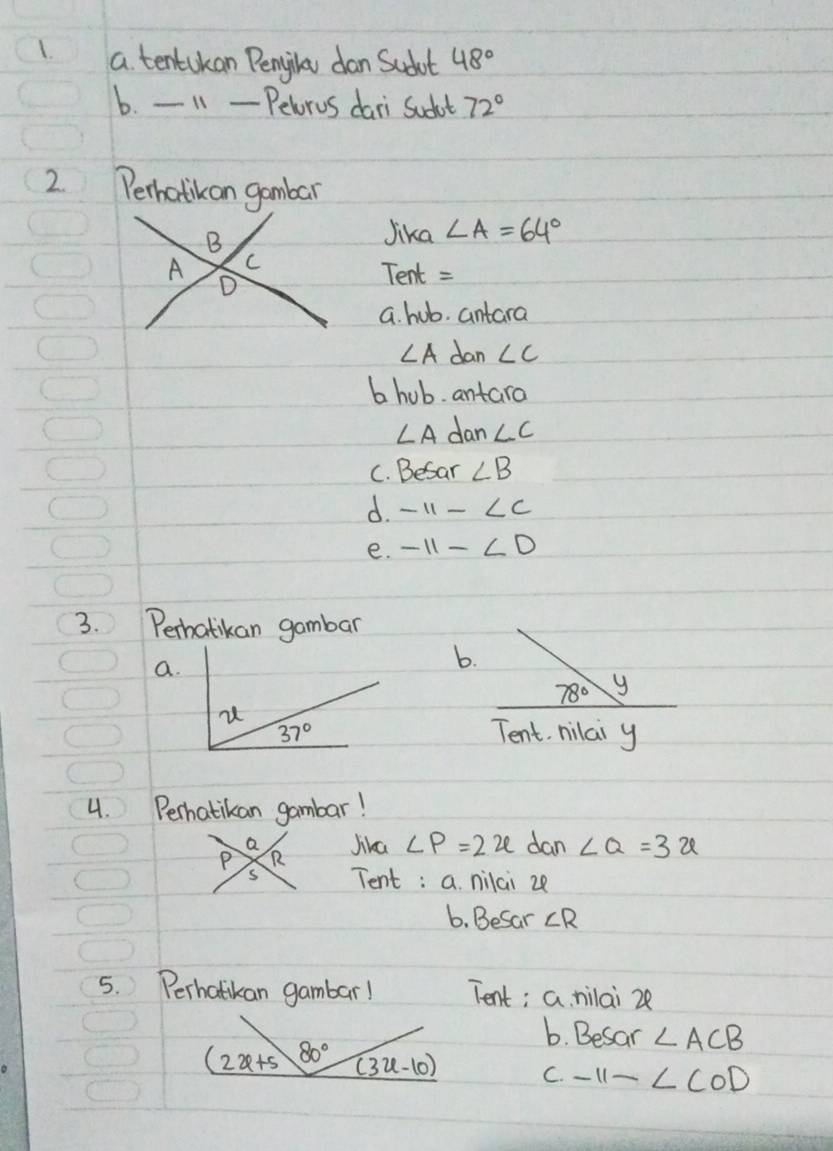 1. a. tentukan Penyiku dan Sudut 48°
b. — " — Pelurus dari Sudut 72°
2. Perhatikan gambar
A B C D
Jika ∠A = 64°
Tent =
a. hub. antara
∠A dan ∠C
b hub. antara
∠A dan ∠C
c. Besar ∠B
d. — " — ∠C
e. — " — ∠D
3. Perhatikan gambar
a. x 37°
b. 78° y
Tent. nilai y
4. Perhatikan gambar!
P Q R S
Jika ∠P = 2x dan ∠Q = 3x
Tent : a. nilai x
b. Besar ∠R
5. Perhatikan gambar!
(2x+5 80° (3x-10)
Tent : a. nilai x
b. Besar ∠ACB
c. — " — ∠COD